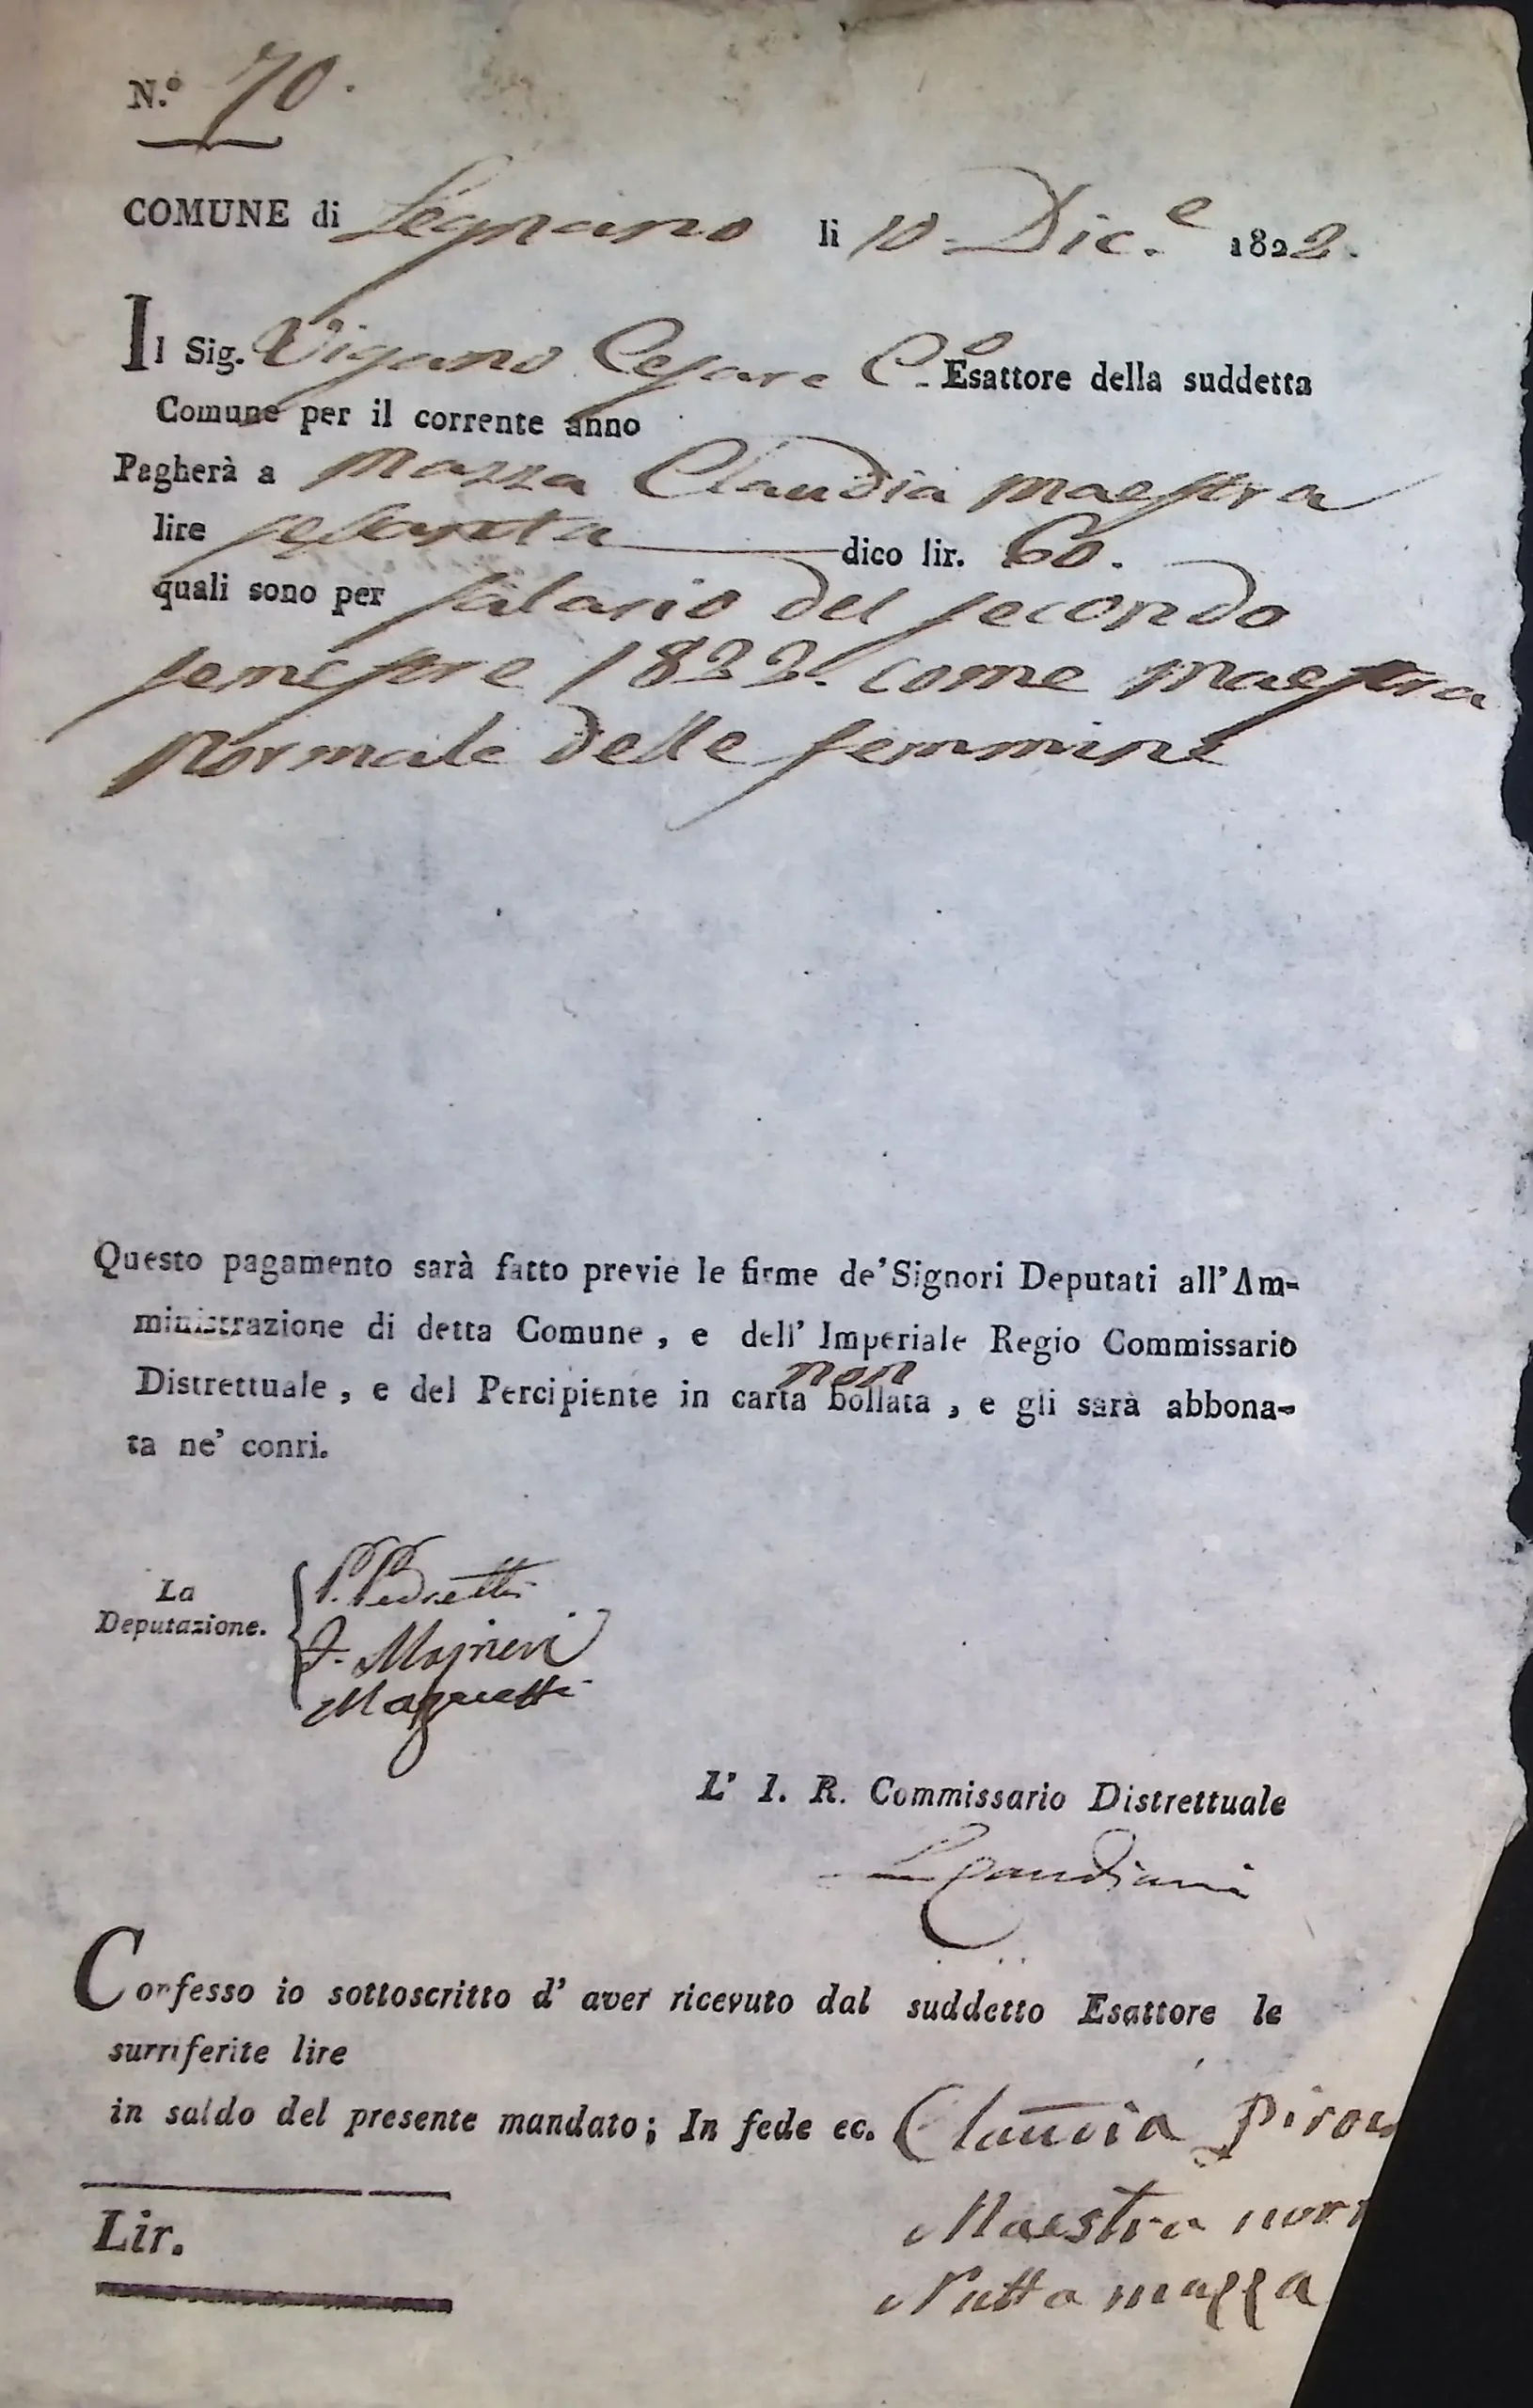 N.° 70.
COMUNE di Legnano li 10. Dic.e 1822.
Il Sig. Vigano Cesare C.o Esattore della suddetta
Comune per il corrente anno
Pagherà a Mazza Claudia maestra
lire sessanta dico lir. 60.
quali sono per salario del secondo
semestre 1822. come maestra
Normale delle femmine
Questo pagamento sarà fatto previe le firme de' Signori Deputati all'Am-
ministrazione di detta Comune, e dell' Imperiale Regio Commissario
non
Distrettuale, e del Percipiente in carta bollata, e gli sarà abbona-
ta ne' conti.
La
Deputazione.
P. Pedretti
Commissario Distrettuale
L' I. R. Commissario Distrettuale
Confesso io sottoscritto d' aver ricevuto dal suddetto Esattore le
surriferite lire
in saldo del presente mandato; In fede ec. Claudia
Maestra nor
Lir.
Natta mazza